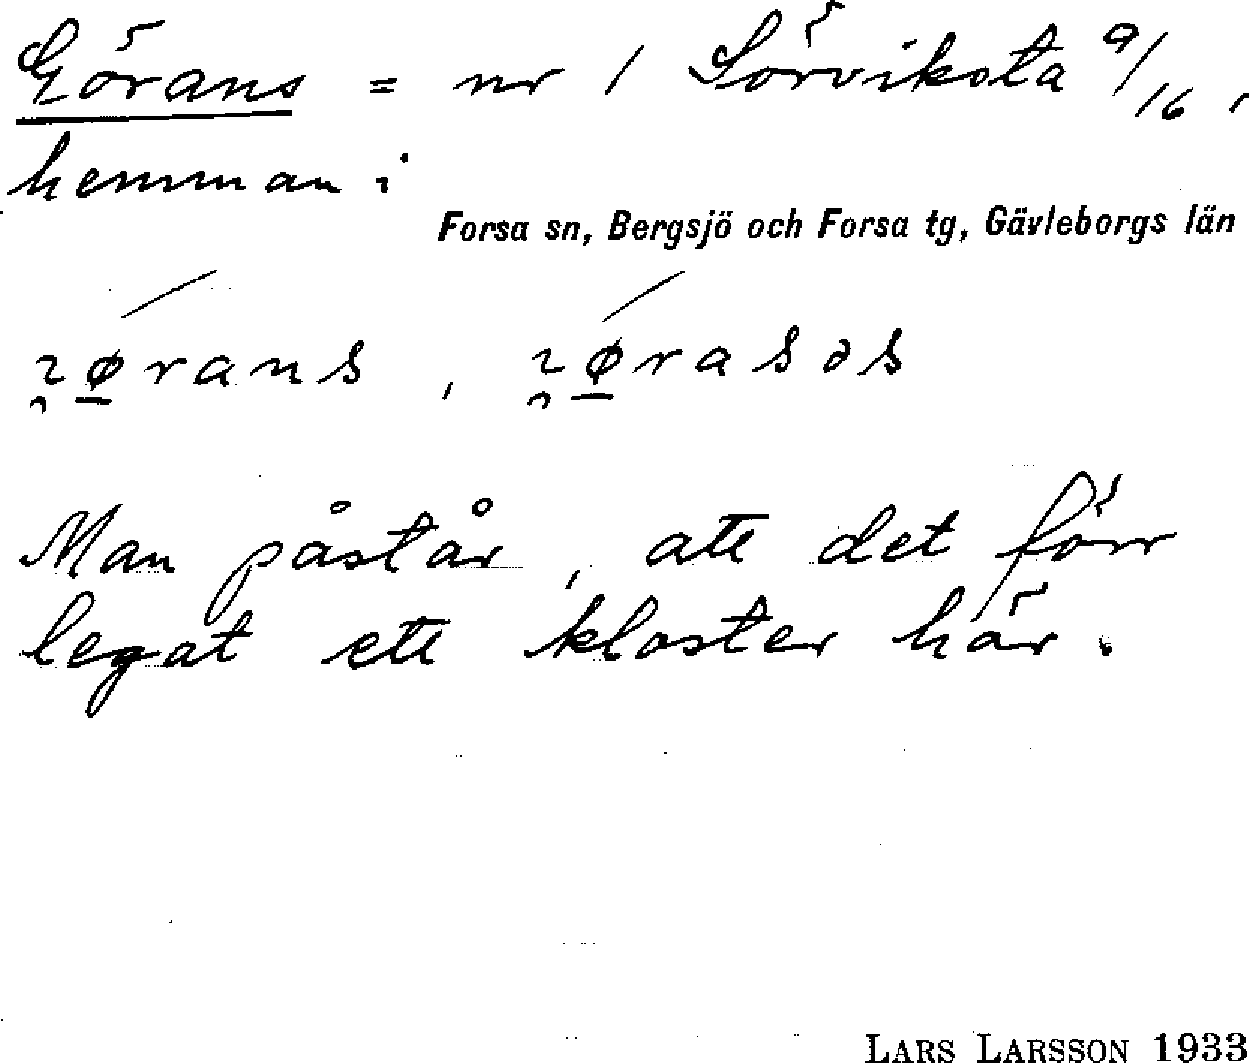 Görans = nr 1 Sörviksta 9/16,
hemman i
Forsa sn, Bergsjö och Forsa tg, Gävleborgs län
Man påstår, att det förr
legat ett kloster här.
LARS LARSSON 1933